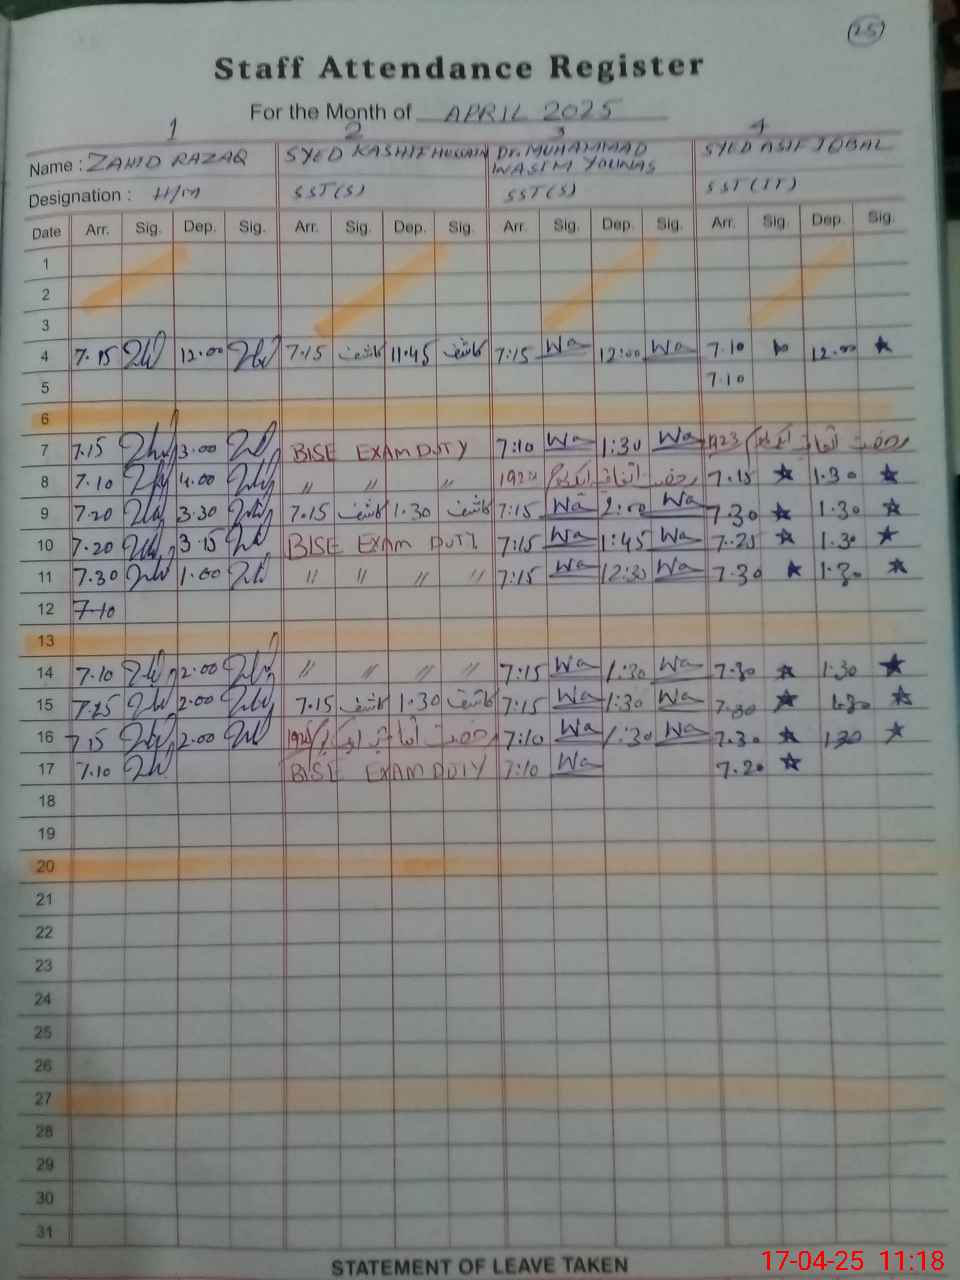 25
Staff Attendance Register
For the Month of APRIL 2025
1 2 3 4
Name : ZAHID RAZAQ SYED KASHIF HUSSAIN Dr. MUHAMMAD WASIM YOUNAS SYED ASIF IQBAL
Designation : H/M SST(S) SST(S) SST(IT)
Date Arr. Sig. Dep. Sig. Arr. Sig. Dep. Sig. Arr. Sig. Dep. Sig. Arr. Sig. Dep. Sig.
1
2
3
4 7.15 12.00 7.15 كاشف 11.45 كاشف 7:15 Wa 12:00 Wa 7.10 12.00
5 7.10
6
7 7.15 3.00 BISE EXAM DUTY 7:10 Wa 1:30 Wa 1923 رخصت
8 7.10 4.00 〃 〃 〃 رخصت 7.15 ★ 1.30 ★
9 7.20 3.30 7.15 كاشف 1.30 كاشف 7:15 Wa 2:00 Wa 7.30 ★ 1.30 ★
10 7.20 3.15 BISE EXAM DUTY 7:15 Wa 1:45 Wa 7.25 ★ 1.30 ★
11 7.30 1.00 〃 〃 〃 〃 7:15 Wa 12:30 Wa 7.30 ★ 1.30 ★
12 7.10
13
14 7.10 2.00 〃 〃 〃 〃 7:15 Wa 1:30 Wa 7.30 ★ 1.30 ★
15 7.25 2.00 7.15 كاشف 1.30 كاشف 7:15 Wa 1:30 Wa 7.30 ★ 1.30 ★
16 7.15 2.00 رخصت 7:10 Wa 1:30 Wa 7.30 ★ 1.30 ★
17 7.10 BISE EXAM DUTY 7:10 Wa 7.20 ★
18
19
20
21
22
23
24
25
26
27
28
29
30
31
STATEMENT OF LEAVE TAKEN
17-04-25 11:18